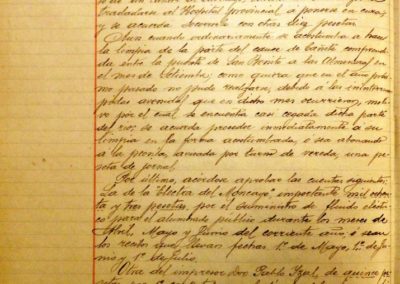 trasladarse al Hospital provincial a ponerse en cura,
y se acuerda socorrerle con otras diez pesetas.
Aun cuando ordinariamente se acostumbra a hacer
la limpia de la parte del cauce de
da entre la puente de San Benito a las Almenas en
el mes de Setiembre, como quiera que en el año próxi
mo pasado no pudo realizarse, debido a las intem
pestivas avenidas que en dicho mes ocurrieron, moti
vo por el cual se encuentra casi cegada dicha parte
del río; se acuerda proceder inmediatamente a su
limpia en la forma acostumbrada, o sea abonando
a la peonía, avisada por turno de vereda, una pe
seta de jornal.
Por último, acórdose aprobar las cuentas siguientes:
La de la "Eléctrica del Moncayo" importante mil ochen
ta y tres pesetas, por el suministro de fluido eléctri
co para el alumbrado público durante los meses de
Abril, Mayo y Junio del corriente año, o sean
los recibos que llevan fechas 1º de Mayo, 1º de Ju
nio y 1º de Julio.
Otra del impresor Don Pablo de quince pe